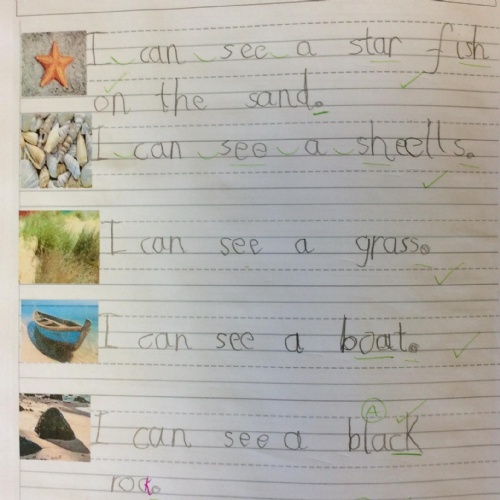 I can see a star fish
on the sand.
I can see a sheells.
I can see a grass.
I can see a boat.
A
I can see a black
rock.